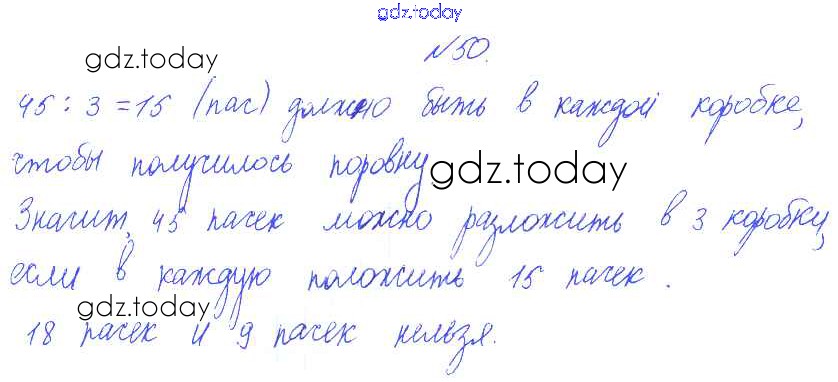 gdz.today
gdz.today
№50.
45 : 3 = 15 (пас) должно быть в каждой коробке,
чтобы получилось поровну
gdz.today
Значит, 45 пачек можно разложить в 3 коробки,
если в каждую положить 15 пачек.
gdz.today
18 пачек и 9 пачек нельзя.